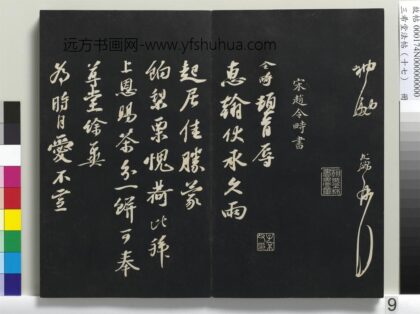 故帖 000174N000000000
三希堂法帖（十七） 冊
宋趙令畤書
令畤頓首辱
惠翰伏承久雨
起居佳勝蒙
餉梨栗愧荷比拜
上恩賜茶分一餅可奉
尊堂餘冀
為時自愛不宣
远方书画网-www.yfshuhua.com
9